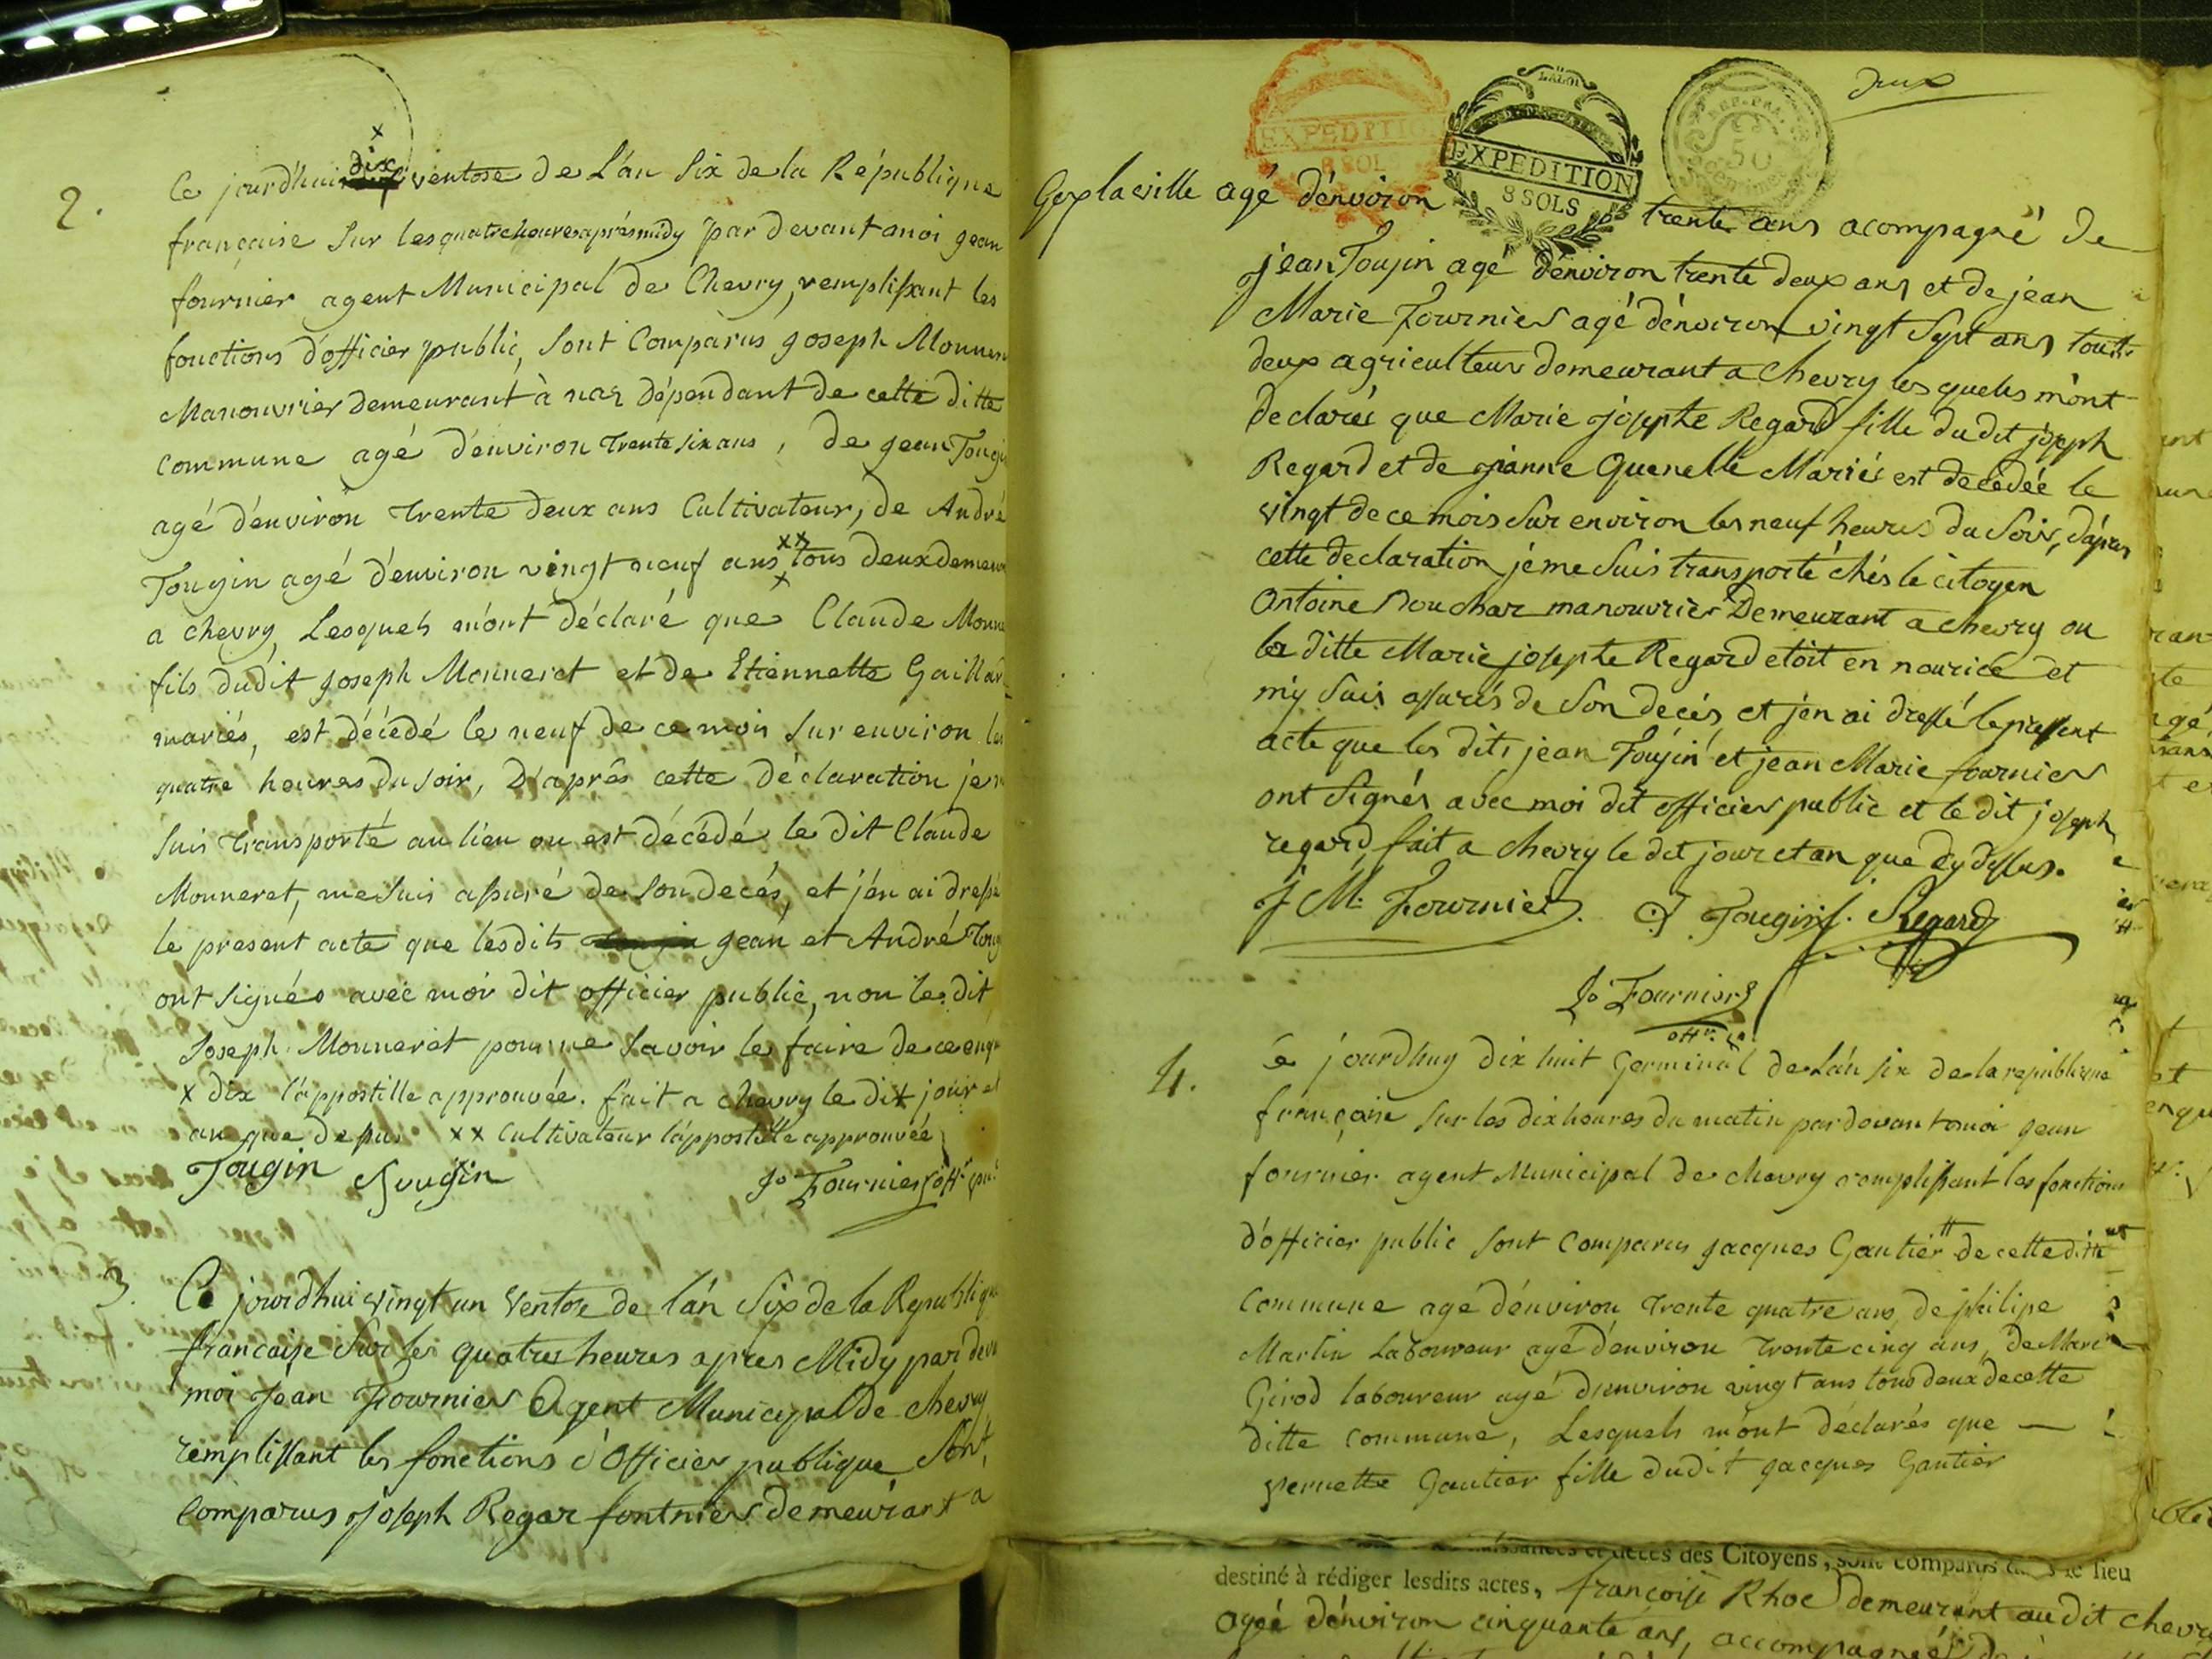 2.
Ce jourd'hui dix ventose de L'an Six de la République
française Sur les quatre heures aprés midy par devant moi jean
fournier agent Municipal de Chevry, remplissant les
fonctions d'officier public, Sont Comparus joseph Monner
Manouvrier demeurant à naz dépendant de cette ditte
commune agé d'environ Trente six ans, de jean Tougin
agé d'environ trente deux ans Cultivateur, de André
Tougin agé d'environ vingt neuf ans xx tous deux demeur
a chevry, Lesquels m'ont déclaré que Claude Monn
fils dudit joseph Monneret et de Etiennette Gaillard
mariés, est décédé le neuf de ce mois Sur environ les
quatre heures du soir, D'aprés cette déclaration je m
suis Transporté au lieu ou est décédé le dit Claude
Monneret, me suis assuré de son decés, et j'en ai dressé
le present acte que lesdits jean et André Toug
ont signés avec moi dit officier public, non le dit
Joseph Monneret pour ne savoir le faire de ce enqu
x dix l'appostille approuvée. fait a chevry le dit jour et
an que dessus xx Cultivateur l'appostille approuvée
Tougin Tougin Jn Fournier off. pu.
3.
Ce jourdhui vingt un Ventose de l'an Six de la Republique
francaise Sur les quatres heures apres Midy par dev
moi Jean Fournier Agent Municipal de chevry
remplissant les fonctions d'Officier publique Sont,
Comparus joseph Regar fontnier demeurant a
LA LOI
EXPEDITION
8 SOLS
EXPEDITION
8 SOLS
REP. FRA.
50
Centimes
deux
Gex la ville agé d'environ trente ans acompagné de
jean Toujin agé d'environ trente deux ans et de jean
Marie Fournier agé d'environ vingt Sept ans tout
deux agriculteur demeurant a Chevry les quels m'ont
declarés que Marie josephte Regard fille du dit joseph
Regard et de jeanne Quenelle Mariés est decédée le
vingt de ce mois Sur environ les neuf heures du Soir, d'apres
cette declaration je me Suis transporté chés le citoyen
Antoine Bouchar manouvrier Demeurant a chevry ou
la ditte Marie josephte Regard etoit en nourice et
m'y Suis assurés de Son decés, et j'en ai dressé le present
acte que les dits jean Toujin et jean Marie fournier
ont Signés avec moi dit officier public et le dit joseph
regard, fait a chevry le dit jour et an que cy dessus.
J M. Fournier J Tougin J. Regard
Jn Fournier
off. p.
4.
Ce jourdhuy dix huit Germinal de L'an six de la republique
françoise Sur les dix heures du matin pardevant moi jean
fournier agent Municipal de chevry remplissant les fonctions
d'officier public sont Comparus jacques Gautier # de cette ditte
Commune agé d'environ trente quatre ans, de philipe
Martin Laboureur agé d'environ Trente cinq ans, de Marc
Girod laboureur agé d'environ vingt ans tous deux de cette
ditte commune, Lesquels m'ont déclarés que —
pernette Gautier fille dudit jacques Gautier
naissances et décès des Citoyens, sont comparus dans le lieu
destiné à rédiger lesdits actes, françoise Rhoc demeurant au dit chevry
agée d'environ cinquante ans, accompagnée de